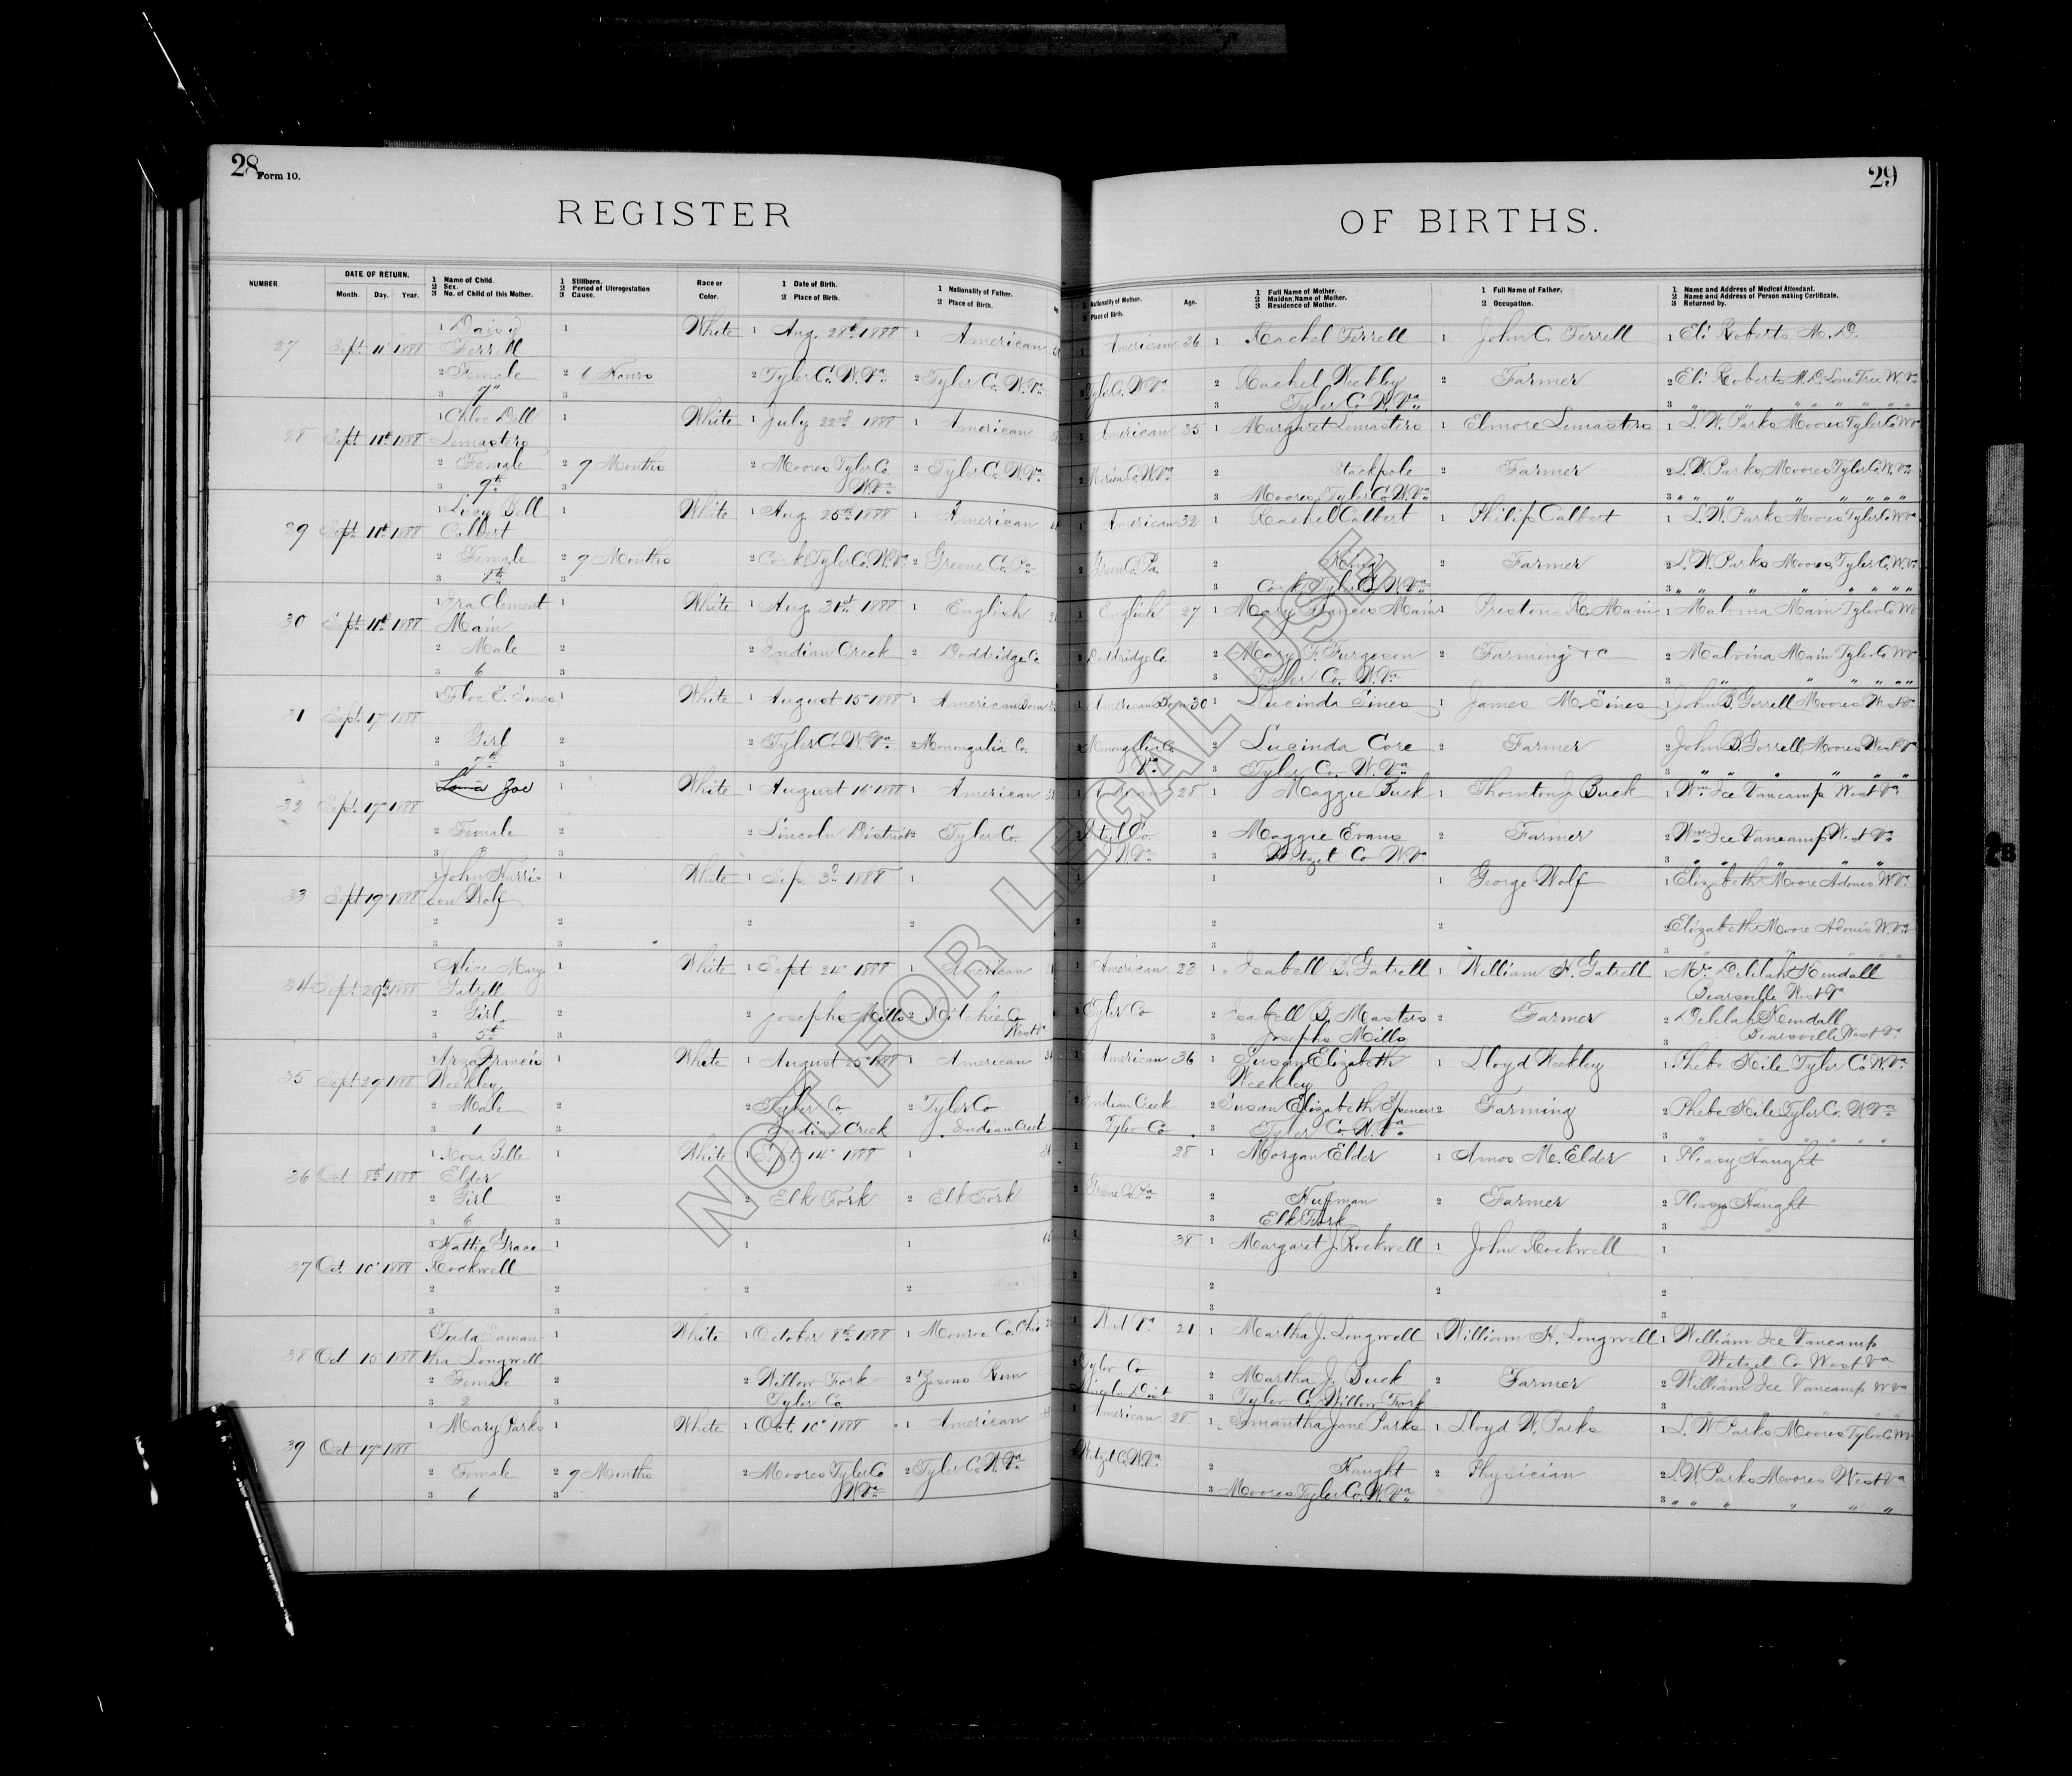 28 Form 10.
REGISTER
NUMBER.
DATE OF RETURN.
Month. Day. Year.
1 Name of Child.
2 Sex.
3 No. of Child of this Mother.
1 Stillborn.
2 Period of Uterogestation
3 Cause.
Race or
Color.
1 Date of Birth.
2 Place of Birth.
1 Nationality of Father.
2 Place of Birth.
27 Sept 11 1888
1 Daisy
Ferrell
2 Female
3 7"
1
2 6 Hours
3
White
1 Aug. 28th 1888
2 Tyler Co. W. Va
1 American
2 Tyler Co. W. Va
28 Sept 11th 1888
1 Chloe Dell
Lemasters
2 Female
3 9th
1
2 9 Months
3
White
1 July 22nd 1888
2 Moores Tyler Co.
W. Va
1 American
2 Tyler Co. W. Va
29 Sept 11th 1888
1 Lucy Bell
Calbert
2 Female
3 8th
1
2 9 Months
3
White
1 Aug. 25th 1888
2 Cork Tyler Co. W. Va
1 American
2 Greene Co. Pa
30 Sept 11th 1888
1 Ira Clement
Main
2 Male
3 6
1
2
3
White
1 Aug. 31st 1888
2 Indian Creek
1 English
2 Doddridge Co.
31 Sept. 17" 1888
1 Floe E. Sines
2 Girl
3 7th
1
2
3
White
1 August 15" 1888
2 Tyler Co W. Va
1 American Born
2 Monongalia Co.
32 Sept. 17" 1888
Zoe
2 Female
3
1
2
3
White
1 August 16" 1888
2 Lincoln District
1 American
2 Tyler Co.
33 Sept 19" 1888
1 John Harri-
son Wolf
2
3
1
2
3
White
1 Sep. 3d 1888
2
1
2
34 Sept. 29th 1888
1 Alice Mary
Gatrell
2 Girl
3 5th
1
2
3
White
1 Sept 24" 1888
2 Josephs Mills
1 American
2 Ritchie Co
West Va
35 Sept 29 1888
1 Arza Francis
Weekley
2 Male
3 1
1
2
3
White
1 August 25" 1888
2 Tyler Co
Indian Creek
1 American
2 Tyler Co
Indian Creek
36 Oct 8th 1888
1 Rosa Belle
Elder
2 Girl
3 6
1
2
3
White
1 Sept. 14" 1888
2 Elk Fork
1
2 Elk Fork
37 Oct. 10" 1888
1 Hattie Grace
Rockwell
2
3
1
2
3
1
2
1
2
38 Oct 15 1888
Saman-
tha Longwell
2 Female
3 2
1
2
3
White
1 October 8th 1888
2 Willow Fork
Tyler Co.
1 Monroe Co. Ohio
2 Run
39 Oct 17" 1888
1 Mary Parks
2 Female
3 1
1
2 9 Months
3
White
1 Oct. 10" 1888
2 Moores Tyler Co
W. Va
1 American
2 Tyler Co. W. Va
29
OF BIRTHS.
Nationality of Mother.
Place of Birth.
Age.
1 Full Name of Mother.
2 Maiden Name of Mother.
3 Residence of Mother.
1 Full Name of Father.
2 Occupation.
1 Name and Address of Medical Attendant.
2 Name and Address of Person making Certificate.
3 Returned by.
1 American 36
Tyler Co. W. Va
1 Rachel Ferrell
2 Rachel Weekley
3 Tyler Co W. Va
1 John C. Ferrell
2 Farmer
1 Eli Roberts M. D.
2 Eli Roberts M. D. Lone Tree W. Va
3 " " " " " " "
1 American 35
Marion Co. W. Va
1 Margaret Lemasters
2 Stackpole
3 Moores Tyler Co. W. Va
1 Elmore Lemasters
2 Farmer
1 L. W. Parks Moores Tyler Co W Va
2 L. W. Parks, Moores Tyler Co. W. Va
3 " " " " " " " "
1 American 32
Green Co. Pa.
1 Rachel Calbert
2 King
3 Cork Tyler Co W. Va
1 Philip Calbert
2 Farmer
1 L. W. Parks Moores Tyler Co W Va
2 L. W. Parks Moores, Tyler Co. W. Va
3 " " " " " " " "
1 English 27
2 Doddridge Co.
1 Mary Frances Main
2 Mary F. Furgeson
3 Tyler Co. W. Va
1 Preston R. Main
2 Farming + c
1 Malvina Main Tyler Co W Va
2 Malvina Main Tyler Co W Va
3 " " " " "
1 American Born 30
2 Monongalia Co
Va
1 Lucinda Sines
2 Lucinda Core
3 Tyler Co. W. Va
1 James M. Sines
2 Farmer
1 John B. Gorrell Moores West Va
2 John B. Gorrell, Moores West Va
3 " " " " " "
25
W. Va
1 Maggie Buck
2 Maggie Evans
3 Wetzel Co W. Va
1 Thornton J Buck
2 Farmer
1 Wm Ice Vancamp West Va
2 Wm Ice Vancamp West Va
3 " " " " "
1
2
1
2
3
1 George Wolf
2
1 Elizabeth Moore Adonis W. Va
2 Elizabeth Moore Adonis W. Va
3
1 American 23
2 Tyler Co
1 Isabell B. Gatrell
2 Isabell B. Masters
3 Josephs Mills
1 William H. Gatrell
2 Farmer
1 Mrs Delilah Kendall
Bearsville West Va
2 Delilah Kendall
3 Bearsville West Va
1 American 36
2 Indian Creek
Tyler Co.
1 Susan Elizabeth
Weekley
2 Susan Elizabeth Spencer
3 Tyler Co. W. Va
1 Lloyd Weekley
2 Farming
1 Phebe Kile Tyler Co W. Va
2 Phebe Kile Tyler Co. W. Va
3 " " " " " "
1 28
2 Greene Co Pa
1 Morgan Elder
2 Huffman
3 Elk Fork
1 Amos M. Elder
2 Farmer
1 Pleasy Haught
2 Pleasy Haught
3 " "
1 38
2
1 Margaret J. Rockwell
2
3
1 John Rockwell
2
1
2
3
1 West Va 21
2 Tyler Co
Lincoln Dist
1 Martha J. Longwell
2 Martha J. Buck
3 Tyler Co. Willow Fork
1 William H. Longwell
2 Farmer
1 William Ice Vancamp
Wetzel Co West Va
2 William Ice Vancamp W Va
3 " " "
1 American 28
Wetzel Co. W. Va
1 Samantha Jane Parks
2 Haught
3 Moores Tyler Co. W. Va
1 Lloyd W. Parks
2 Physician
1 L. W Parks Moores Tyler Co W Va
2 L. W. Parks Moores West Va
3 " " " " " "
NOT FOR LEGAL USE
28